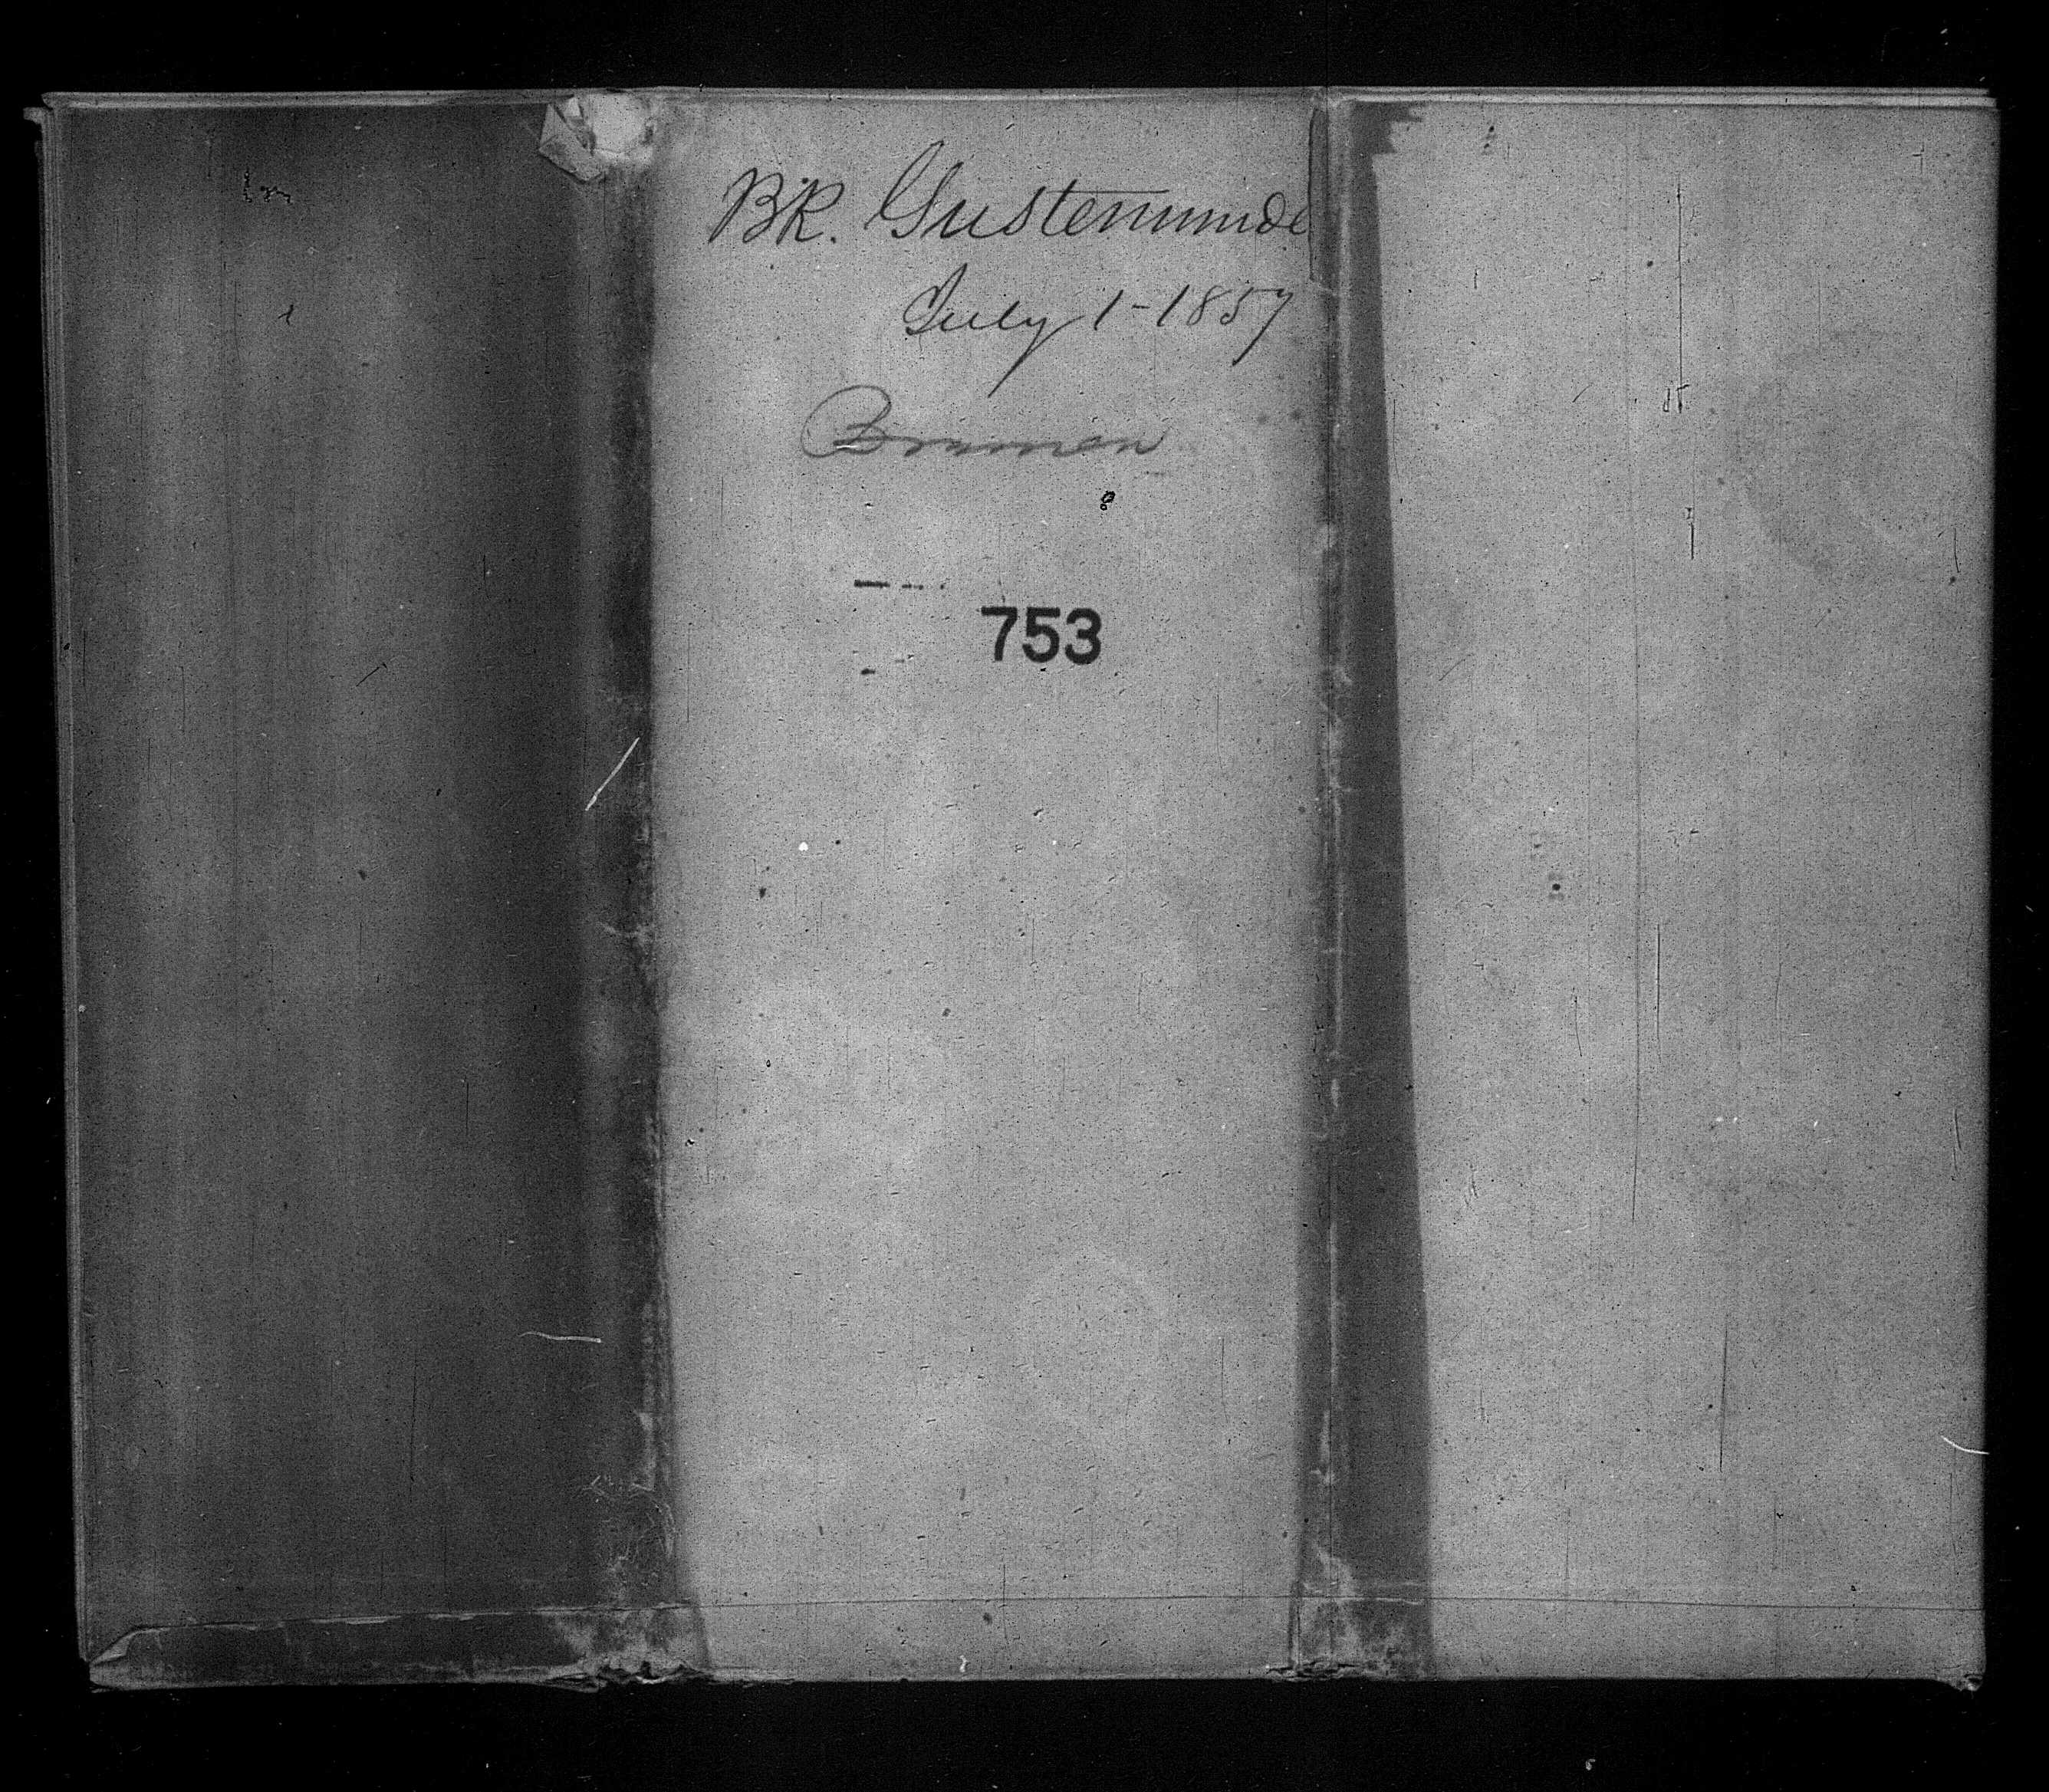 BK. Gustemunde
July 1-1857
Bremen
753